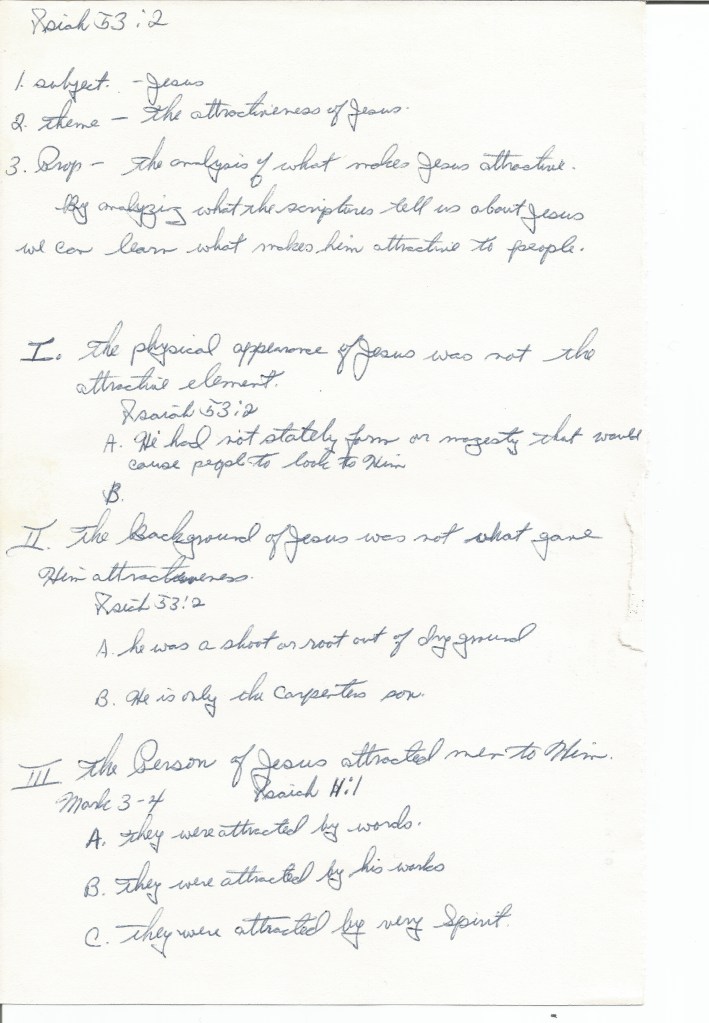 Isiah 53:2
1. subject. - Jesus
2. theme - the attractiveness of Jesus.
3. Prop - the analysis of what makes Jesus attractive.
By analyzing what the scriptures tell us about Jesus
we can learn what makes him attractive to people.
I. the physical appearance of Jesus was not the
attractive element.
Isaiah 53:2
A. He had not stately form or magesty that would
cause people to look to Him
B.
II. the Background of Jesus was not what gave
Him attractiveness.
Isiah 53:2
A. he was a shoot or root out of dry ground
B. He is only the carpenters son.
III the Person of Jesus attracted men to Him.
Mark 3-4 Isaiah 11:1
A. they were attracted by words.
B. they were attracted by his works
C. they were attracted by very Spirit.